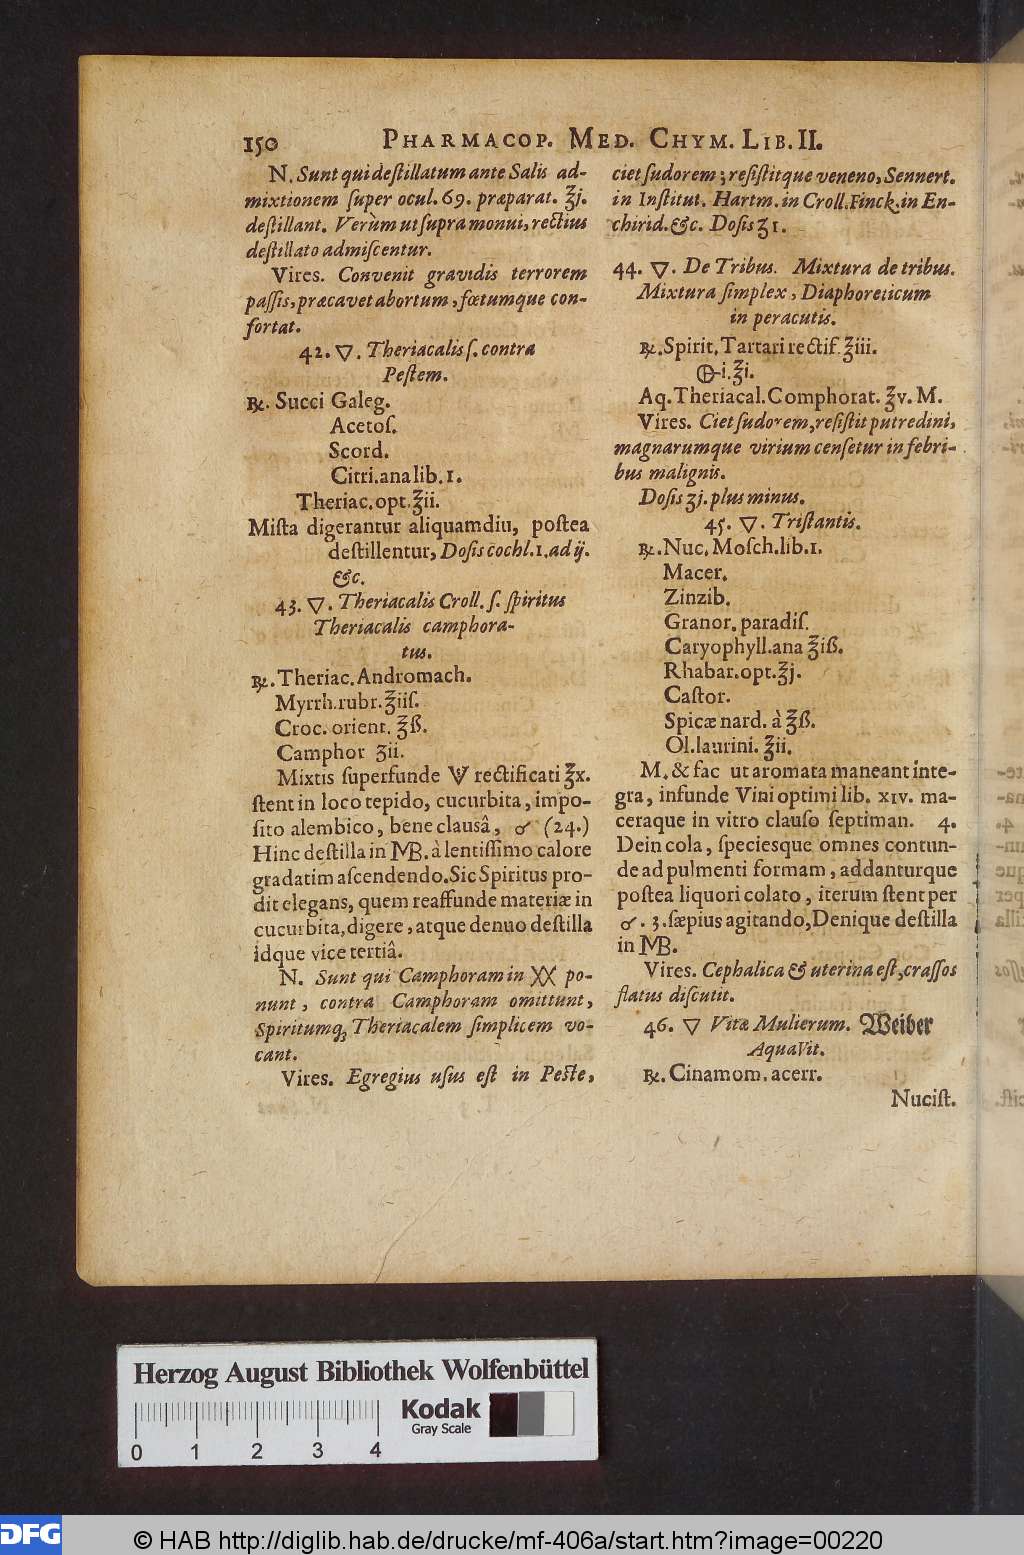 150 PHARMACOP. MED. CHYM. LIB. II.
N. Sunt qui deſtillatum ante Salis ad-
mixtionem ſuper ocul. 69. præparat. ℥j.
deſtillant. Verùm ut ſupra monui, rectius
deſtillato admiſcentur.
Vires. Convenit gravidis terrorem
paſſis, præcavet abortum, fœtumque con-
fortat.
42. 🜄. Theriacalis ſ. contra
Peſtem.
℞. Succi Galeg.
Acetoſ.
Scord.
Citri. ana lib. 1.
Theriac. opt. ℥ii.
Miſta digerantur aliquamdiu, poſtea
deſtillentur, Doſis cochl. 1. ad ij.
&c.
43. 🜄. Theriacalis Croll. ſ. ſpiritus
Theriacalis camphora-
tus.
℞. Theriac. Andromach.
Myrrh. rubr. ℥iiſ.
Croc. orient. ℥ß.
Camphor ʒii.
Mixtis ſuperfunde 🜈 rectificati ℥x.
ſtent in loco tepido, cucurbita, impo-
ſito alembico, bene clausâ, ☌ (24.)
Hinc deſtilla in MB. à lentiſſimo calore
gradatim aſcendendo. Sic Spiritus pro-
dit elegans, quem reaffunde materiæ in
cucurbita, digere, atque denuo deſtilla
idque vice tertiâ.
N. Sunt qui Camphoram in XX po-
nunt, contra Camphoram omittunt,
Spiritumq; Theriacalem ſimplicem vo-
cant.
Vires. Egregius uſus eſt in Peſte,
ciet ſudorem; reſiſtitque veneno, Sennert.
in Inſtitut. Hartm. in Croll. Finck. in En-
chirid. &c. Doſis ʒ1.
44. 🜄. De Tribus. Mixtura de tribus.
Mixtura ſimplex, Diaphoreticum
in peracutis.
℞. Spirit. Tartari rectif. ℥iii.
🜖i. ℥i.
Aq. Theriacal. Comphorat. ℥v. M.
Vires. Ciet ſudorem, reſiſtit putredini,
magnarumque virium cenſetur in febri-
bus malignis.
Doſis ʒj. plus minus.
45. 🜄. Triſtantis.
℞. Nuc. Moſch. lib. 1.
Macer.
Zinzib.
Granor. paradiſ.
Caryophyll. ana ℥iß.
Rhabar. opt. ℥j.
Caſtor.
Spicæ nard. à ℥ß.
Ol. laurini. ℥ii.
M. & fac ut aromata maneant inte-
gra, infunde Vini optimi lib. XIV. ma-
ceraque in vitro clauſo ſeptiman. 4.
Dein cola, ſpeciesque omnes contun-
de ad pulmenti formam, addanturque
poſtea liquori colato, iterum ſtent per
☌. 3. ſæpius agitando, Denique deſtilla
in MB.
Vires. Cephalica & uterina eſt, craſſos
flatus diſcutit.
46. 🜄 Vitæ Mulierum. Weiber
Aqua Vit.
℞. Cinamom. acerr.
Nuciſt.
Herzog August Bibliothek Wolfenbüttel
Kodak
Gray Scale
0 1 2 3 4
DFG © HAB http://diglib.hab.de/drucke/mf-406a/start.htm?image=00220